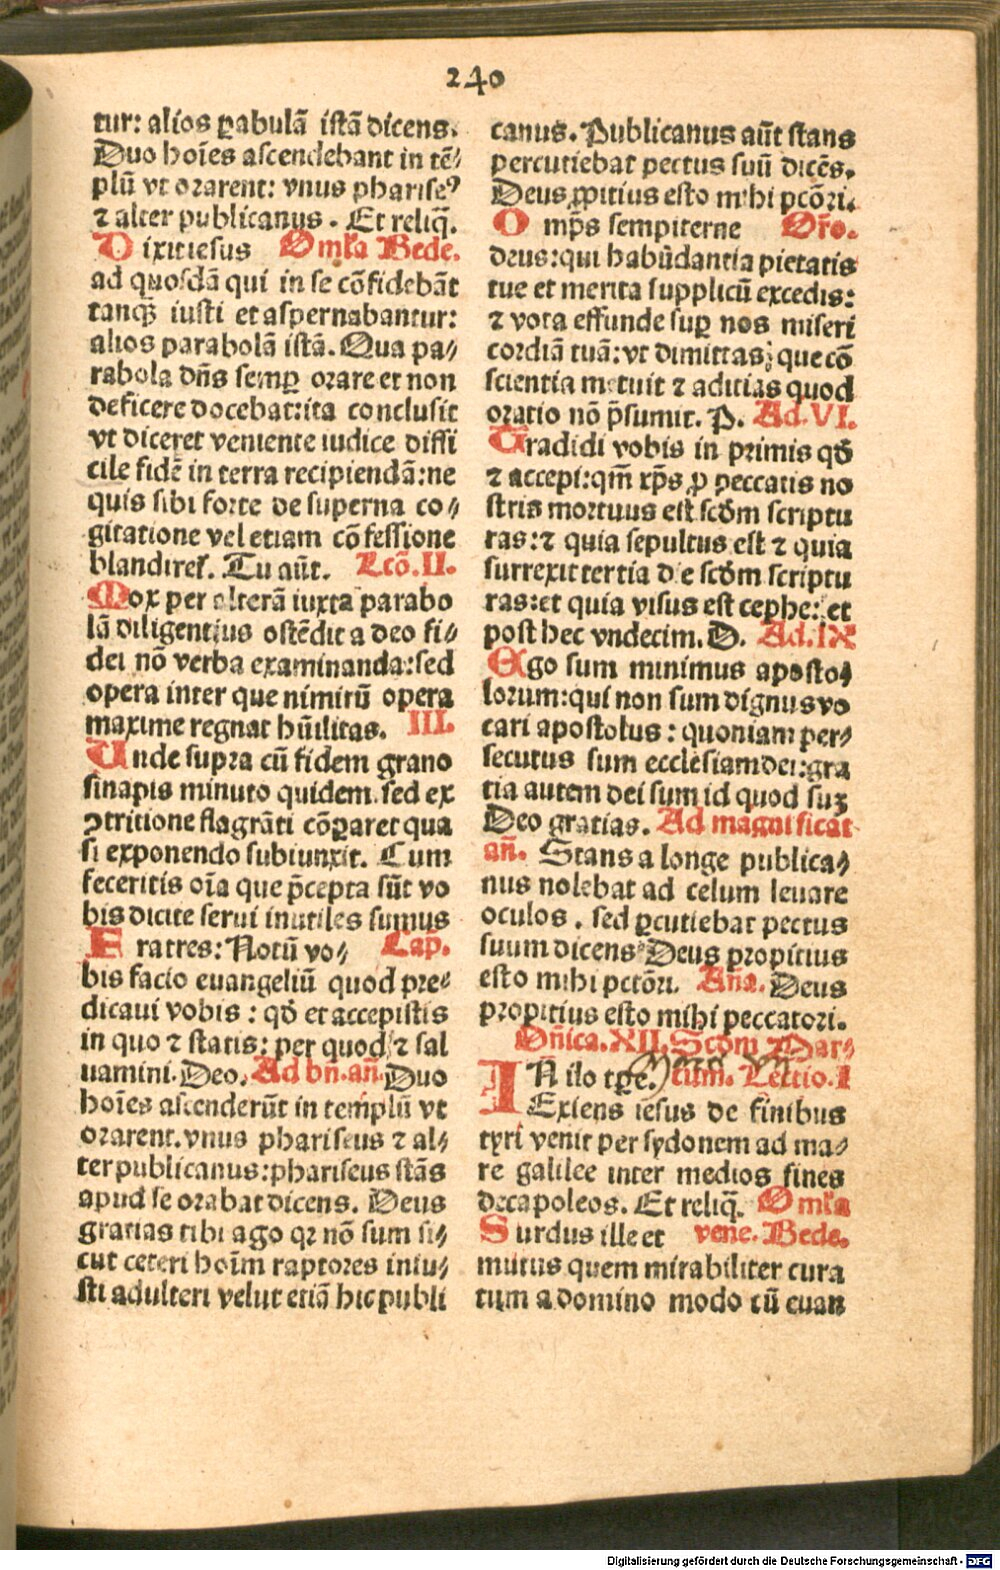 240
tur: alios ꝑabulā istā dicens.
Duo hoīes ascendebant in tē⸗
plū vt orarent: vnus pharise⁹
⁊ alter publicanus. Et reliq̄.
Dixit iesus Omīa Bede.
ad quosdā qui in se cōfidebāt
tanqȝ iusti et aspernabantur:
alios parabolā istā. Qua pa⸗
rabola dn̄s semꝑ orare et non
deficere docebat: ita conclusit
vt diceret veniente iudice diffi
cile fidē in terra recipiendā: ne
quis sibi forte de superna co⸗
gitatione vel etiam cōfessione
blandiret᷑. Tu aūt. Lcō. II.
Mox per alterā iuxta parabo
lā diligentius ostēdit a deo fi⸗
dei nō verba examinanda: sed
opera inter que nimirū opera
maxime regnat hūilitas. III.
Unde supra cū fidem grano
sinapis minuto quidem. sed ex
ꝯtritione flagrāti cōꝑaret qua
si exponendo subiunxit. Cum
feceritis oīa que p̄cepta sūt vo
bis dicite serui inutiles sumus
Fratres: Notū vo⸗ Cap̄.
bis facio euangeliū quod pre⸗
dicaui vobis: qđ et accepistis
in quo ⁊ statis: per quod ⁊ sal
uamini. Deo. Ad bn̄. an̄. Duo
hoīes ascenderūt in templū vt
orarent. vnus phariseus ⁊ al⸗
ter publicanus: phariseus stās
apud se orabat dicens. Deus
gratias tibi ago qꝛ nō sum si⸗
cut ceteri hoīm raptores iniu⸗
sti adulteri velut etiā hic publi
canus. Publicanus aūt stans
percutiebat pectus suū dicēs.
Deus ꝓpitius esto mihi pcōri.
Omp̄s sempiterne Or̄o.
deus: qui habūdantia pietatis
tue et merita supplicū excedis:
⁊ vota effunde suꝑ nos miseri
cordiā tuā: vt dimittas; que cō
scientia metuit ⁊ adicias quod
oratio nō p̄sumit. P. Ad. VI.
Tradidi vobis in primis qđ
⁊ accepi: qm̄ xp̄s ꝓ peccatis no
stris mortuus est scđm scriptu
ras: ⁊ quia sepultus est ⁊ quia
surrexit tertia die scđm scriptu
ras: et quia visus est cephe: et
post hec vndecim. D. Ad. IX
Ego sum minimus aposto⸗
lorum: qui non sum dignus vo
cari apostolus: quoniam per⸗
secutus sum ecclesiam dei: gra
tia autem dei sum id quod suꝫ
Deo gratias. Ad magnificat
an̄. Stans a longe publica⸗
nus nolebat ad celum leuare
oculos. sed ꝑcutiebat pectus
suum dicens Deus propitius
esto mihi pctōri. An̄a. Deus
propitius esto mihi peccatori.
Dn̄ica. XII. Scđm Mar⸗
IN illo tꝑe. cum. Lectio. I
Exiens iesus de finibus
tyri venit per sydonem ad ma⸗
re galilee inter medios fines
decapoleos. Et reliq̄. Omīa
Surdus ille et vene. Bede.
mutus quem mirabiliter cura
tum a domino modo cū euan
Digitalisierung gefördert durch die Deutsche Forschungsgemeinschaft - DFG